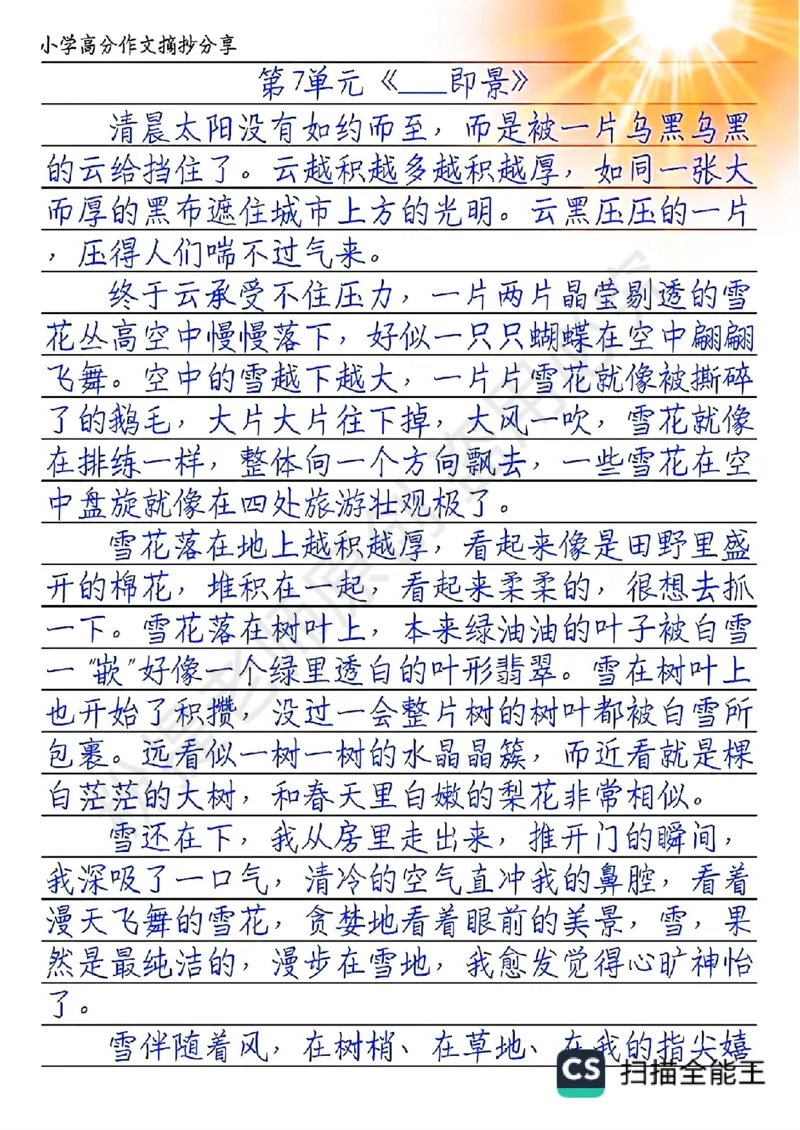 小学高分作文摘抄分享
第7单元《___即景》
清晨太阳没有如约而至，而是被一片乌黑乌黑
的云给挡住了。云越积越多越积越厚，如同一张大
而厚的黑布遮住城市上方的光明。云黑压压的一片
，压得人们喘不过气来。
终于云承受不住压力，一片两片晶莹剔透的雪
花丛高空中慢慢落下，好似一只只蝴蝶在空中翩翩
飞舞。空中的雪越下越大，一片片雪花就像被撕碎
了的鹅毛，大片大片往下掉，大风一吹，雪花就像
在排练一样，整体向一个方向飘去，一些雪花在空
中盘旋就像在四处旅游壮观极了。
雪花落在地上越积越厚，看起来像是田野里盛
开的棉花，堆积在一起，看起来柔柔的，很想去抓
一下。雪花落在树叶上，本来绿油油的叶子被白雪
一“嵌”好像一个绿里透白的叶形翡翠。雪在树叶上
也开始了积攒，没过一会整片树的树叶都被白雪所
包裹。远看似一树一树的水晶晶簇，而近看就是棵
白茫茫的大树，和春天里白嫩的梨花非常相似。
雪还在下，我从房里走出来，推开门的瞬间，
我深吸了一口气，清冷的空气直冲我的鼻腔，看着
漫天飞舞的雪花，贪婪地看着眼前的美景，雪，果
然是最纯洁的，漫步在雪地，我愈发觉得心旷神怡
了。
雪伴随着风，在树梢、在草地、在我的指尖嬉
CS 扫描全能王